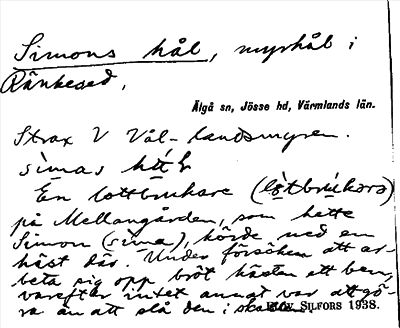 Simons hål, myrhål i
Ränkesed.
Älgå sn, Jösse hd, Värmlands län.
Strax V Vål-landsmyren.
simas
En lottbrukare (lòtbrukara)
på Mellangården, som hette
Simon (sima), körde ned en
häst där. Under försöken att ar-
beta sig opp bröt hästen ett ben,
varefter intet annat var att gö-
ra än att slå den i skallen.
SILFORS 1938.